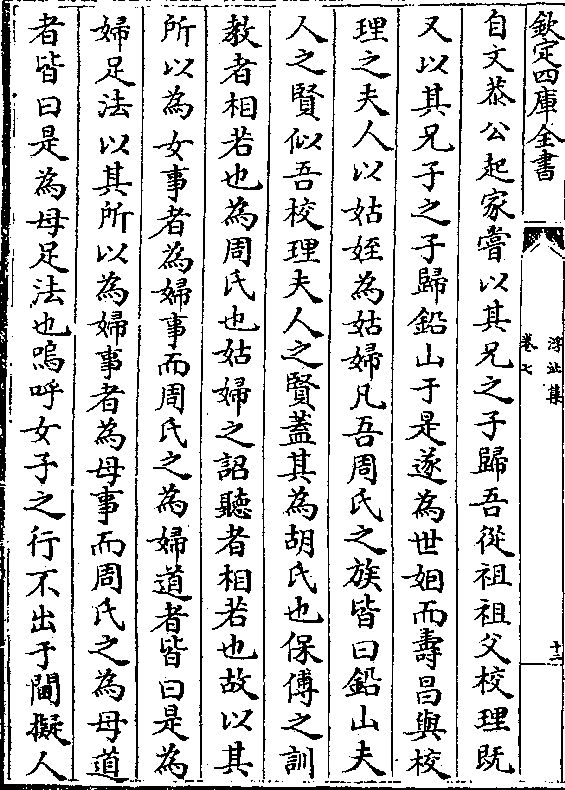 欽定四庫全書
浮沚集
卷七
十二
自文恭公起家嘗以其兄之子歸吾從祖祖父校理既
又以其兄子之子歸鉛山于是遂為世姻而壽昌與校
理之夫人以姑姪為姑婦凡吾周氏之族皆曰鉛山夫
人之賢似吾校理夫人之賢葢其為胡氏也保傅之訓
教者相若也為周氏也姑婦之詔聽者相若也故以其
所以為女事者為婦事而周氏之為婦道者皆曰是為
婦足法以其所以為婦事者為母事而周氏之為母道
者皆曰是為母足法也嗚呼女子之行不出于閫擬人